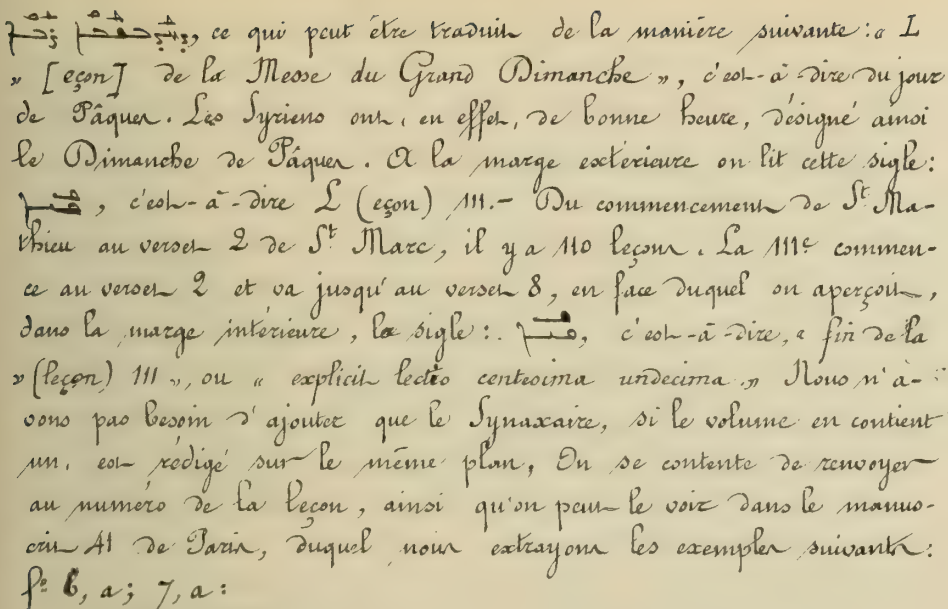 , ce qui peut être traduit de la manière suivante : « L
» [eçon] de la Messe du Grand Dimanche », c'est-à-dire du jour
de Pâques. Les Syriens ont, en effet, de bonne heure, désigné ainsi
le Dimanche de Pâques. A la marge extérieure on lit cette sigle:
, c'est-à-dire L (eçon) 111.- Du commencement de St. Ma-
thieu au verset 2 de St. Marc, il y a 110 leçons. La 111e commen-
ce au verset 2 et va jusqu'au verset 8, en face duquel on aperçoit,
dans la marge intérieure, la sigle:. , c'est-à-dire, « fin de la
» (leçon) 111 », ou « explicit lectio centesima undecima. » Nous n'a-
vons pas besoin d'ajouter que le Synaxaire, si le volume en contient
un, est rédigé sur le même plan, On se contente de renvoyer
au numéro de la leçon, ainsi qu'on peut le voir dans le manus-
crit 41 de Paris, duquel nous extrayons les exemples suivants:
fº 6, a; 7, a: